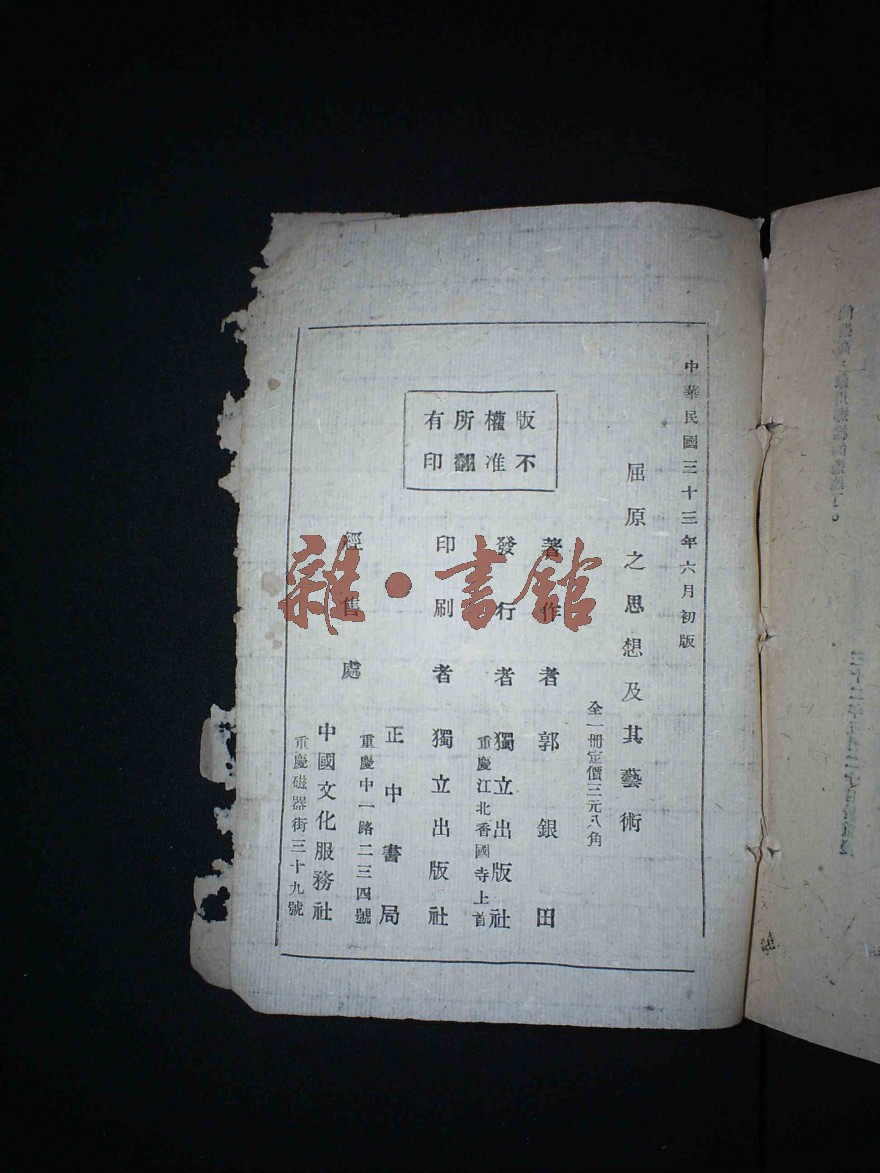 中華民國三十三年六月初版
屈原之思想及其藝術
全一冊定價三元八角
版權所有
不准翻印
著作者 郭銀田
發行者 獨立出版社
重慶江北香國寺上首
印刷者 獨立出版社
經售處
正中書局
重慶中一路二三四號
中國文化服務社
重慶磁器街三十九號
雜·書館